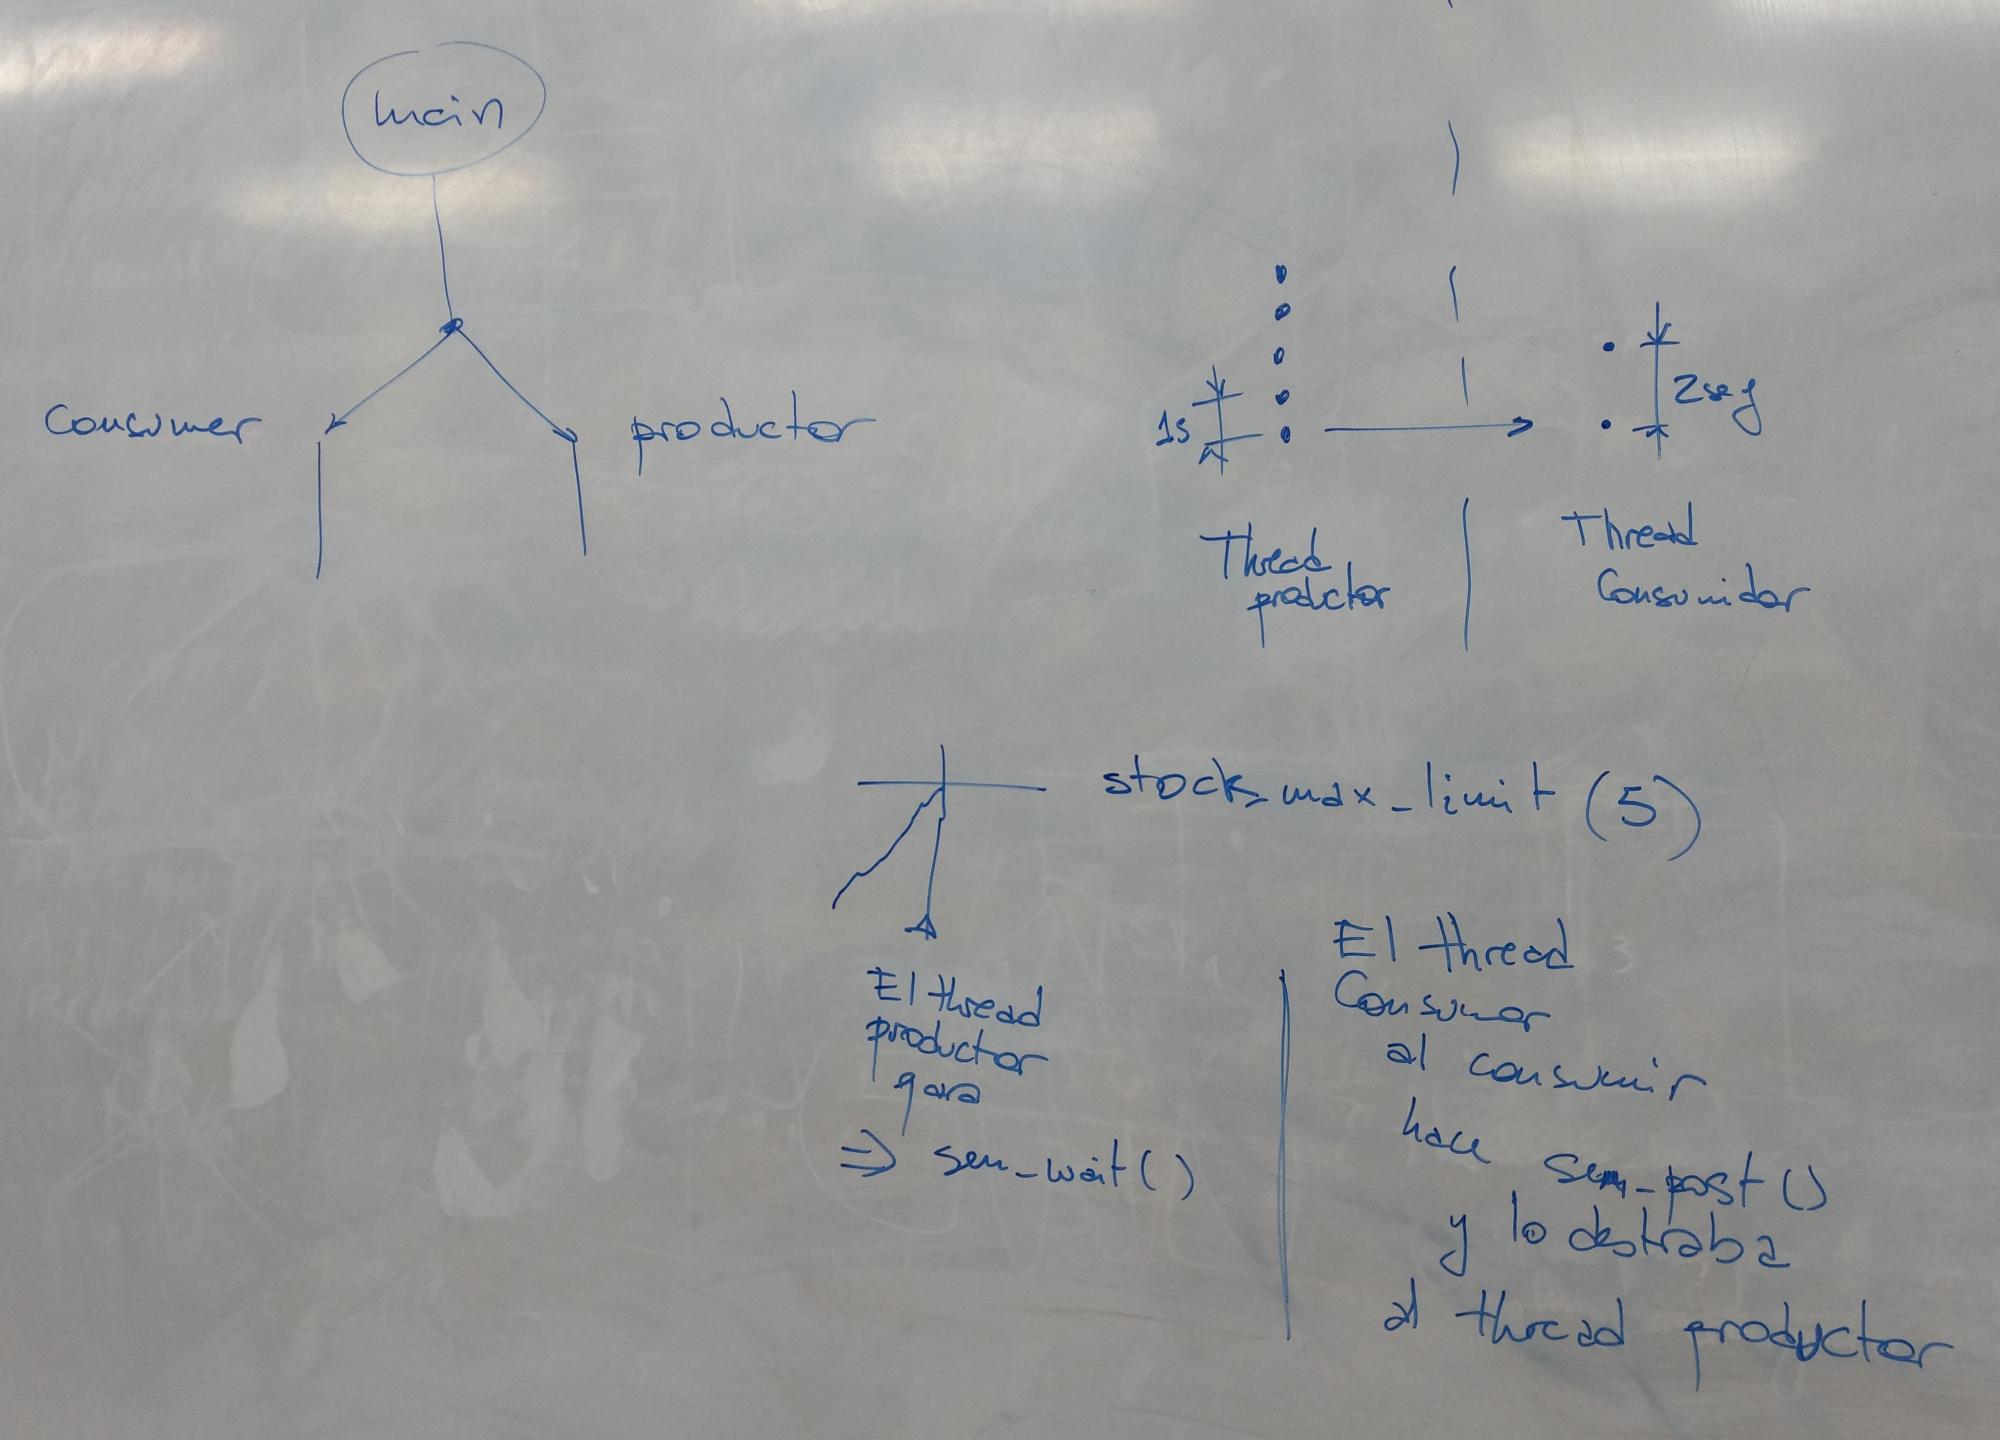 main
Consumer
productor
1s
2seg
Thread
productor
Thread
Consumidor
stock_max_limit (5)
El thread
productor
para
⇒ sem_wait()
El thread
Consumer
al consumir
hace sem_post()
y lo destraba
al thread productor